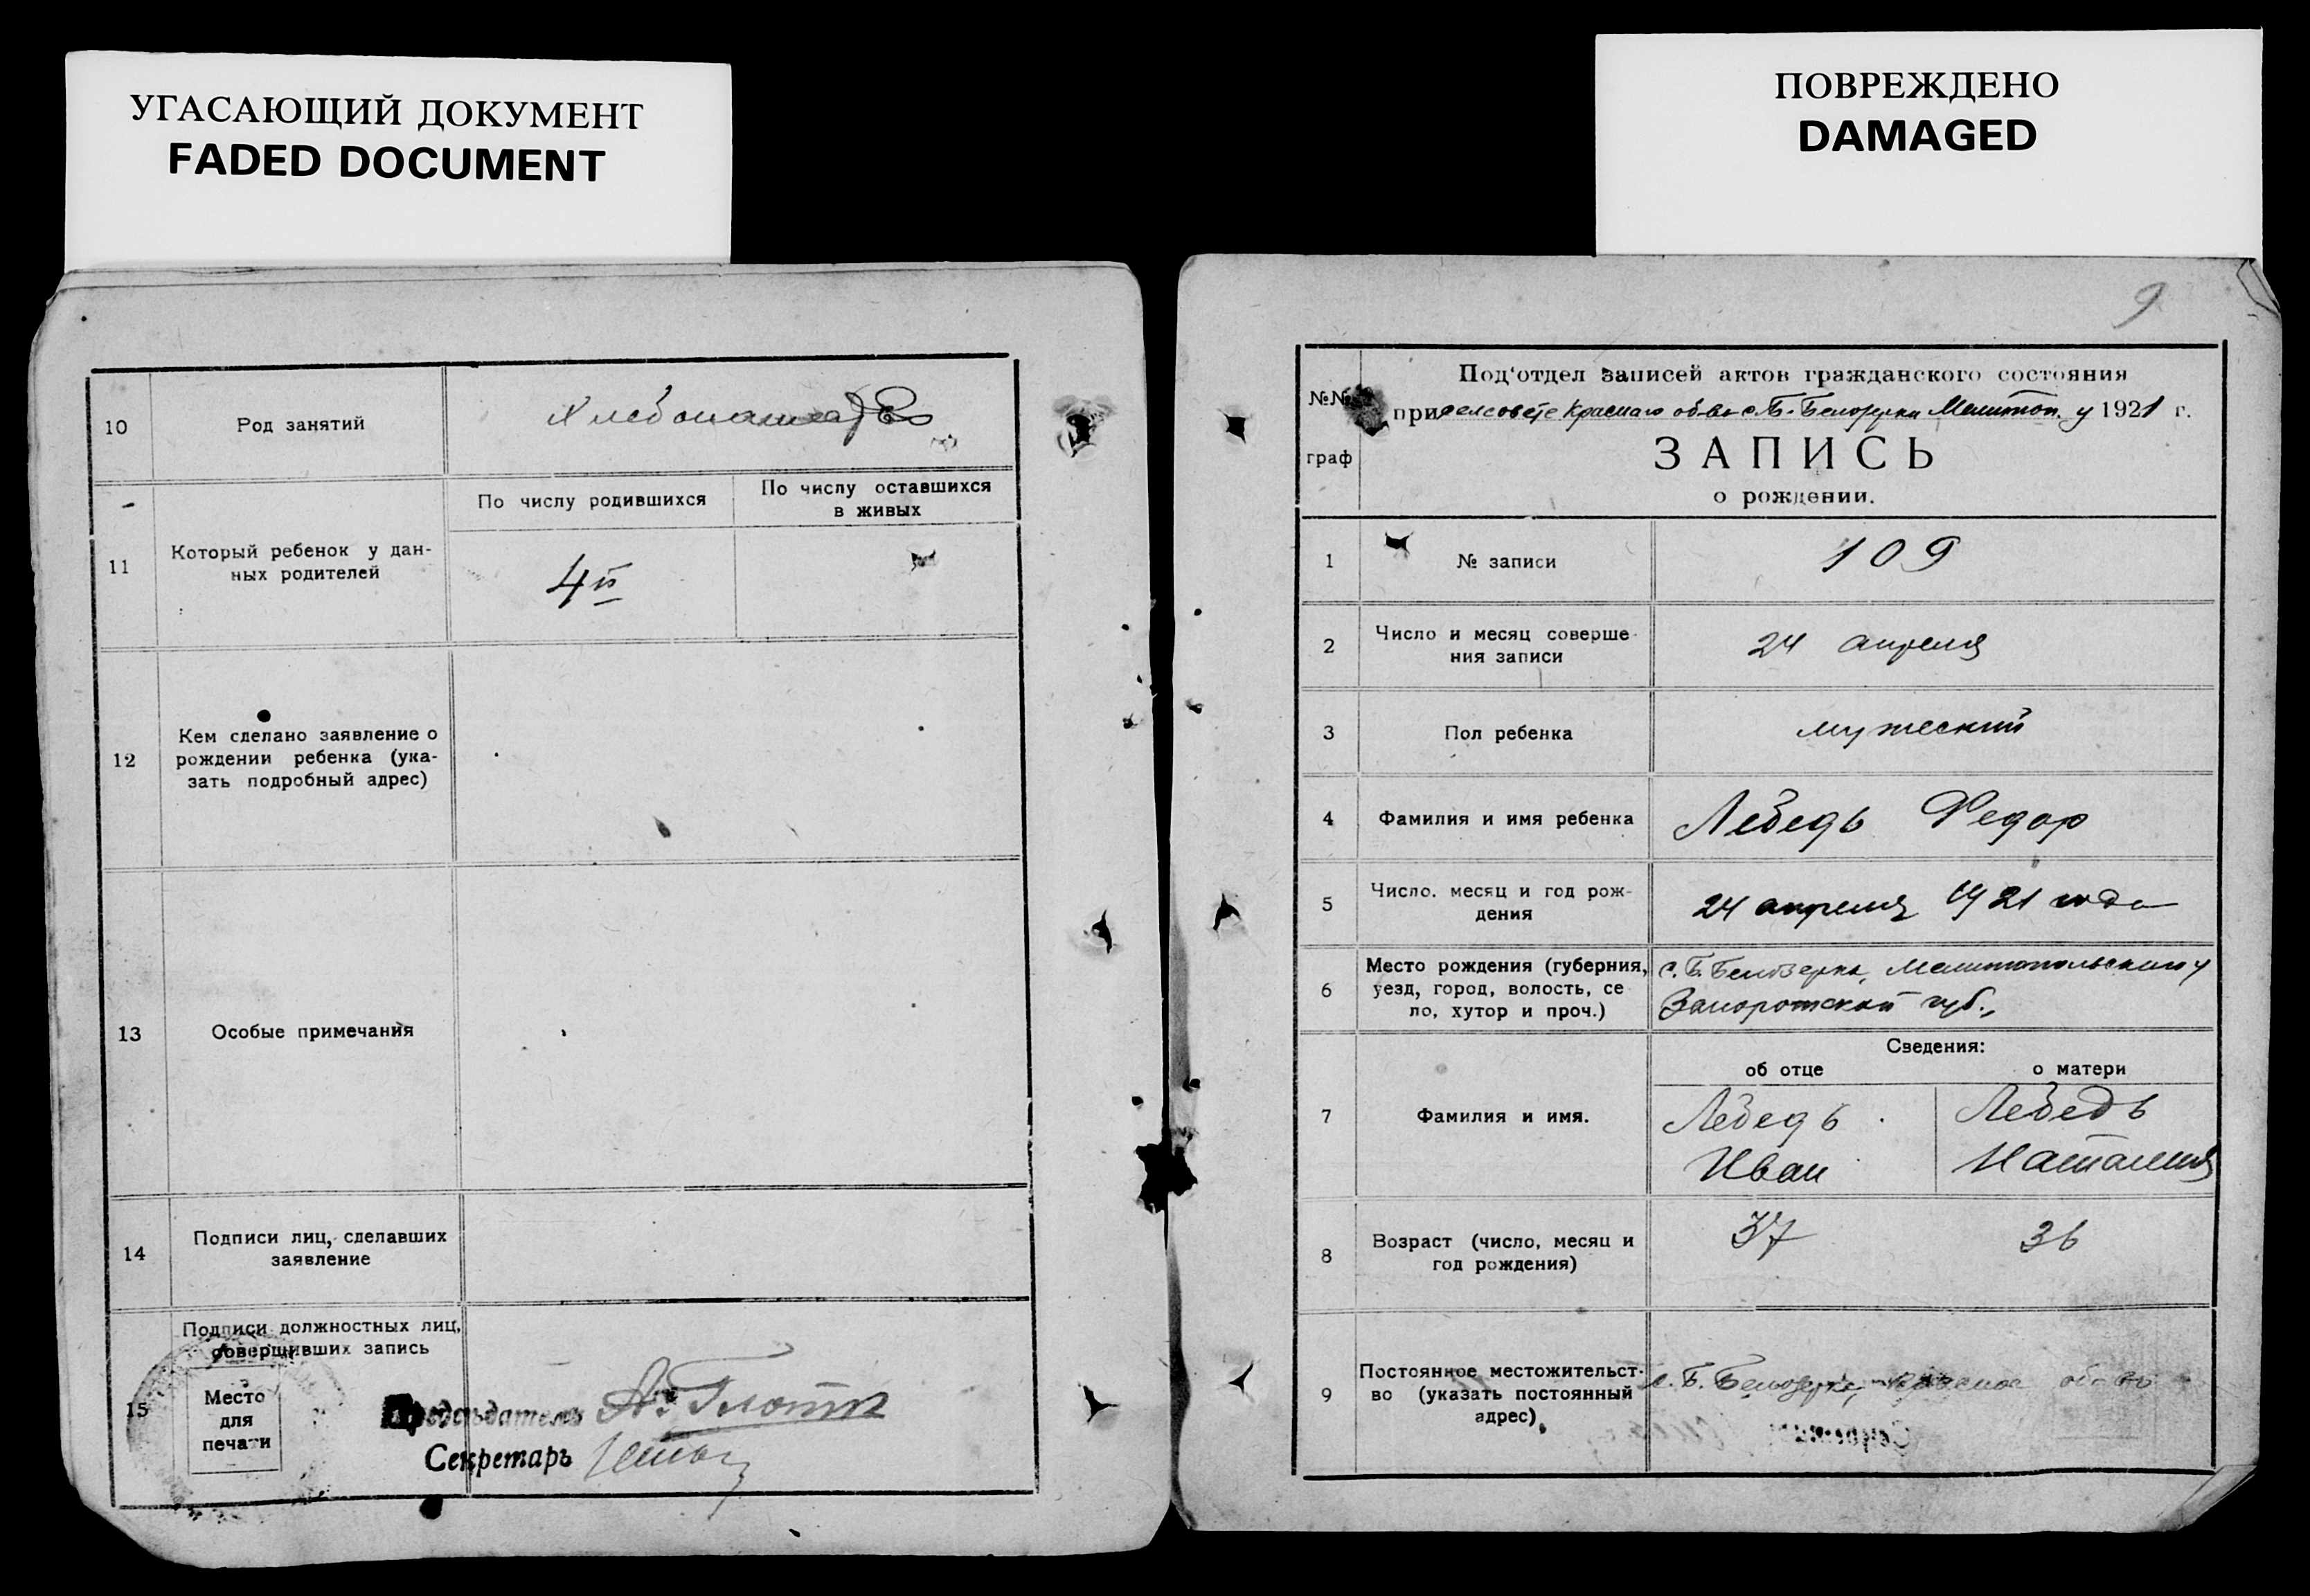 УГАСАЮЩИЙ ДОКУМЕНТ
FADED DOCUMENT
ПОВРЕЖДЕНО
DAMAGED
10
Род занятий
Хлебопашество
11
Который ребенок у дан-
ных родителей
По числу родившихся
По числу оставшихся
в живых
4й
12
Кем сделано заявление о
рождении ребенка (ука-
зать подробный адрес)
13
Особые примечания
14
Подписи лиц, сделавших
заявление
15
Подписи должностных лиц,
совершивших запись
Место
для
печати
Председатель
Секретарь
9
№№
граф
Под'отдел записей актов гражданского состояния
при сельсовете Красного об-ва с. Б-Белозерки Мелитоп. у 1921 г.
ЗАПИСЬ
о рождении.
1
№ записи
109
2
Число и месяц соверше-
ния записи
24 апреля
3
Пол ребенка
мужеский
4
Фамилия и имя ребенка
Лебедь Федор
5
Число. месяц и год рож-
дения
24 апреля 1921 года
6
Место рождения (губерния,
уезд, город, волость, се
ло, хутор и проч.)
с. Б. Белозерка, Мелитопольского у
Запорожской губ.,
Сведения:
об отце
о матери
7
Фамилия и имя.
Лебедь
Иван
Лебедь
Наталия
8
Возраст (число, месяц и
год рождения)
37
36
9
Постоянное местожительст-
во (указать постоянный
адрес)
с. Б. Белозерка,